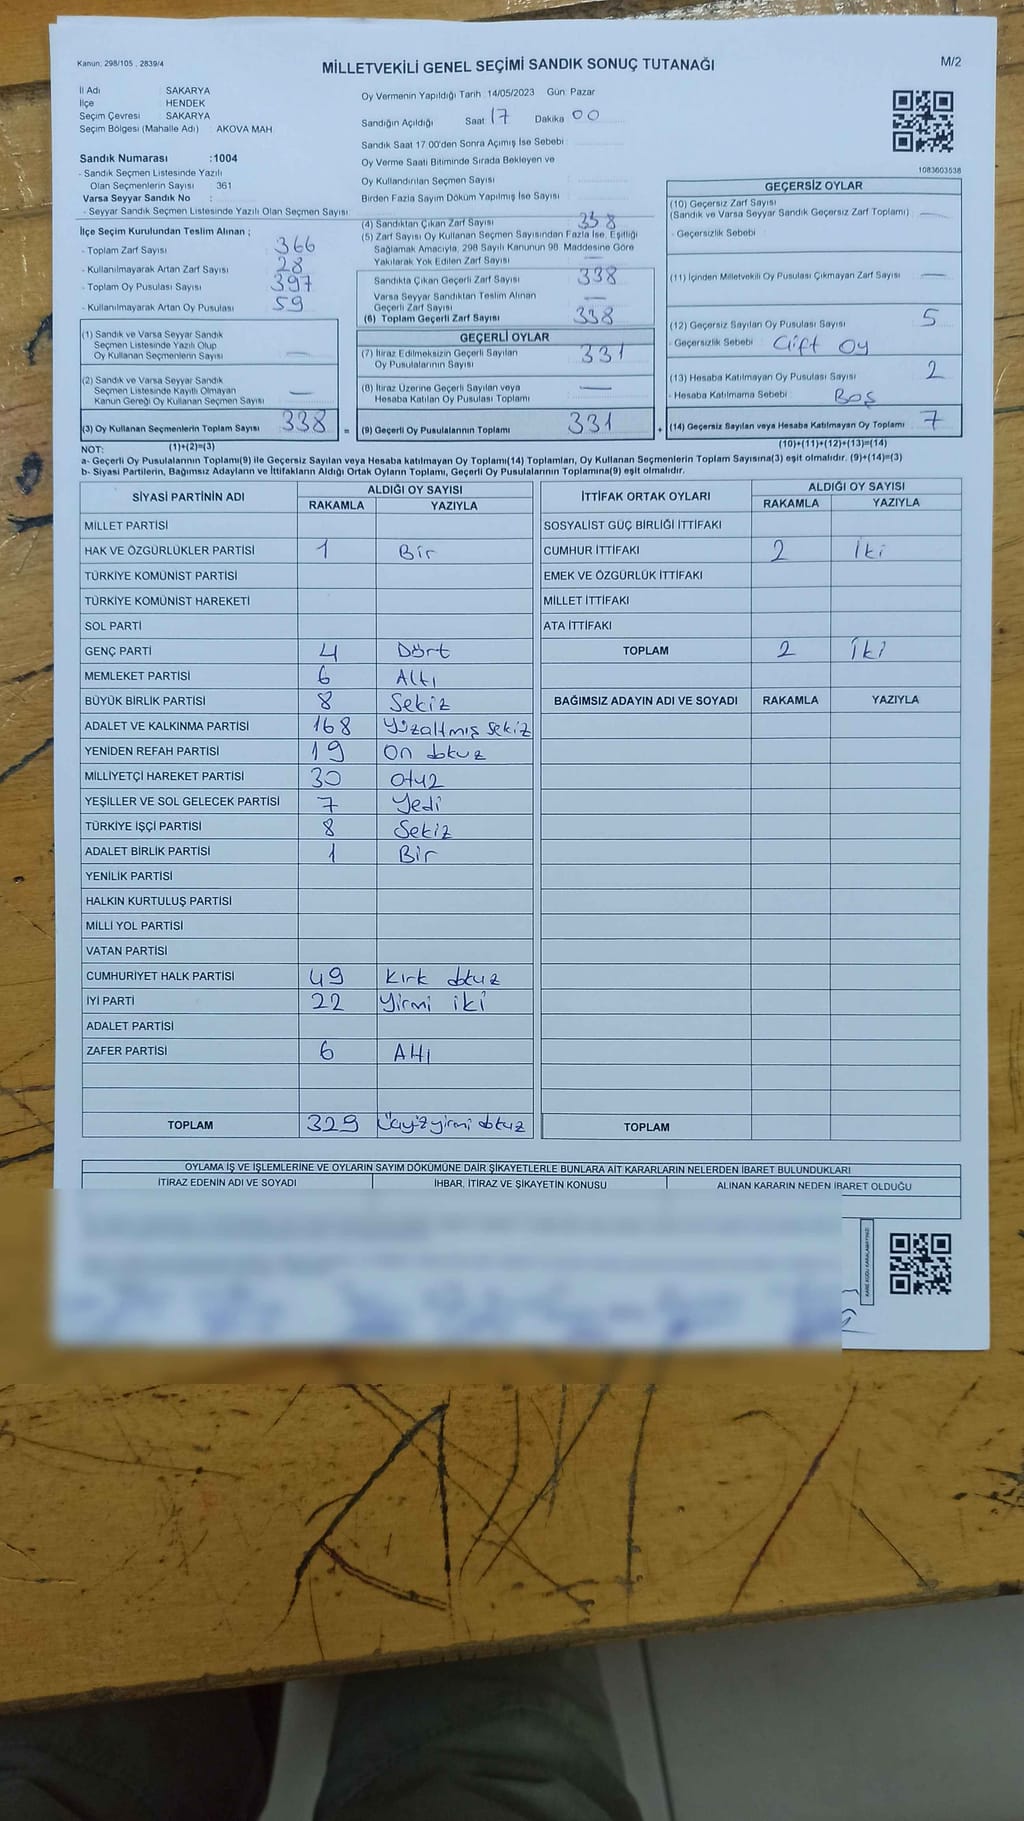 Kanun, 298/105 , 2839/4
MİLLETVEKİLİ GENEL SEÇİMİ SANDIK SONUÇ TUTANAĞI
M/2
İl Adı : SAKARYA
İlçe : HENDEK
Seçim Çevresi : SAKARYA
Seçim Bölgesi (Mahalle Adı) : AKOVA MAH.
Sandık Numarası :1004
- Sandık Seçmen Listesinde Yazılı
Olan Seçmenlerin Sayısı 361
Varsa Seyyar Sandık No :
- Seyyar Sandık Seçmen Listesinde Yazılı Olan Seçmen Sayısı:
Oy Vermenin Yapıldığı Tarih :14/05/2023 Gün: Pazar
Sandığın Açıldığı Saat 17 Dakika 00
Sandık Saat 17.00'den Sonra Açılmış İse Sebebi:
Oy Verme Saati Bitiminde Sırada Bekleyen ve
Oy Kullandırılan Seçmen Sayısı :
Birden Fazla Sayım Döküm Yapılmış İse Sayısı :
1083603538
İlçe Seçim Kurulundan Teslim Alınan ;
- Toplam Zarf Sayısı : 366
- Kullanılmayarak Artan Zarf Sayısı : 28
- Toplam Oy Pusulası Sayısı : 397
- Kullanılmayarak Artan Oy Pusulası : 59
(1) Sandık ve Varsa Seyyar Sandık
Seçmen Listesinde Yazılı Olup
Oy Kullanan Seçmenlerin Sayısı : —
(2) Sandık ve Varsa Seyyar Sandık
Seçmen Listesinde Kayıtlı Olmayan
Kanun Gereği Oy Kullanan Seçmen Sayısı : —
(3) Oy Kullanan Seçmenlerin Toplam Sayısı 338 =
(4) Sandıktan Çıkan Zarf Sayısı : 338
(5) Zarf Sayısı Oy Kullanan Seçmen Sayısından Fazla İse, Eşitliği
Sağlamak Amacıyla, 298 Sayılı Kanunun 98. Maddesine Göre
Yakılarak Yok Edilen Zarf Sayısı : —
Sandıkta Çıkan Geçerli Zarf Sayısı : 338
Varsa Seyyar Sandıktan Teslim Alınan
Geçerli Zarf Sayısı : —
(6) Toplam Geçerli Zarf Sayısı : 338
GEÇERLİ OYLAR
(7) İtiraz Edilmeksizin Geçerli Sayılan
Oy Pusulalarının Sayısı : 331
(8) İtiraz Üzerine Geçerli Sayılan veya
Hesaba Katılan Oy Pusulası Toplamı : —
(9) Geçerli Oy Pusulalarının Toplamı : 331 +
GEÇERSİZ OYLAR
(10) Geçersiz Zarf Sayısı
(Sandık ve Varsa Seyyar Sandık Geçersiz Zarf Toplamı) : —
- Geçersizlik Sebebi :
(11) İçinden Milletvekili Oy Pusulası Çıkmayan Zarf Sayısı : —
(12) Geçersiz Sayılan Oy Pusulası Sayısı : 5
- Geçersizlik Sebebi : Çift oy
(13) Hesaba Katılmayan Oy Pusulası Sayısı : 2
- Hesaba Katılmama Sebebi : Boş
(14) Geçersiz Sayılan veya Hesaba Katılmayan Oy Toplamı : 7
NOT: (1)+(2)=(3)
(10)+(11)+(12)+(13)=(14)
a- Geçerli Oy Pusulalarının Toplamı(9) ile Geçersiz Sayılan veya Hesaba katılmayan Oy Toplamı(14) Toplamları, Oy Kullanan Seçmenlerin Toplam Sayısına(3) eşit olmalıdır. (9)+(14)=(3)
b- Siyasi Partilerin, Bağımsız Adayların ve İttifakların Aldığı Ortak Oyların Toplamı, Geçerli Oy Pusulalarının Toplamına(9) eşit olmalıdır.
SİYASİ PARTİNİN ADI ALDIĞI OY SAYISI
RAKAMLA YAZIYLA
MİLLET PARTİSİ
HAK VE ÖZGÜRLÜKLER PARTİSİ 1 Bir
TÜRKİYE KOMÜNİST PARTİSİ
TÜRKİYE KOMÜNİST HAREKETİ
SOL PARTİ
GENÇ PARTİ 4 Dört
MEMLEKET PARTİSİ 6 Altı
BÜYÜK BİRLİK PARTİSİ 8 Sekiz
ADALET VE KALKINMA PARTİSİ 168 Yüzaltmış sekiz
YENİDEN REFAH PARTİSİ 19 On dokuz
MİLLİYETÇİ HAREKET PARTİSİ 30 Otuz
YEŞİLLER VE SOL GELECEK PARTİSİ 7 Yedi
TÜRKİYE İŞÇİ PARTİSİ 8 Sekiz
ADALET BİRLİK PARTİSİ 1 Bir
YENİLİK PARTİSİ
HALKIN KURTULUŞ PARTİSİ
MİLLİ YOL PARTİSİ
VATAN PARTİSİ
CUMHURİYET HALK PARTİSİ 49 Kırk dokuz
İYİ PARTİ 22 Yirmi iki
ADALET PARTİSİ
ZAFER PARTİSİ 6 Altı
TOPLAM 329 Üçyüzyirmi dokuz
İTTİFAK ORTAK OYLARI ALDIĞI OY SAYISI
RAKAMLA YAZIYLA
SOSYALİST GÜÇ BİRLİĞİ İTTİFAKI
CUMHUR İTTİFAKI 2 İki
EMEK VE ÖZGÜRLÜK İTTİFAKI
MİLLET İTTİFAKI
ATA İTTİFAKI
TOPLAM 2 İki
BAĞIMSIZ ADAYIN ADI VE SOYADI RAKAMLA YAZIYLA
TOPLAM
OYLAMA İŞ VE İŞLEMLERİNE VE OYLARIN SAYIM DÖKÜMÜNE DAİR ŞİKAYETLERLE BUNLARA AİT KARARLARIN NELERDEN İBARET BULUNDUKLARI
İTİRAZ EDENİN ADI VE SOYADI İHBAR, İTİRAZ VE ŞİKAYETİN KONUSU ALINAN KARARIN NEDEN İBARET OLDUĞU
KARE KODU KARALAMAYINIZ!